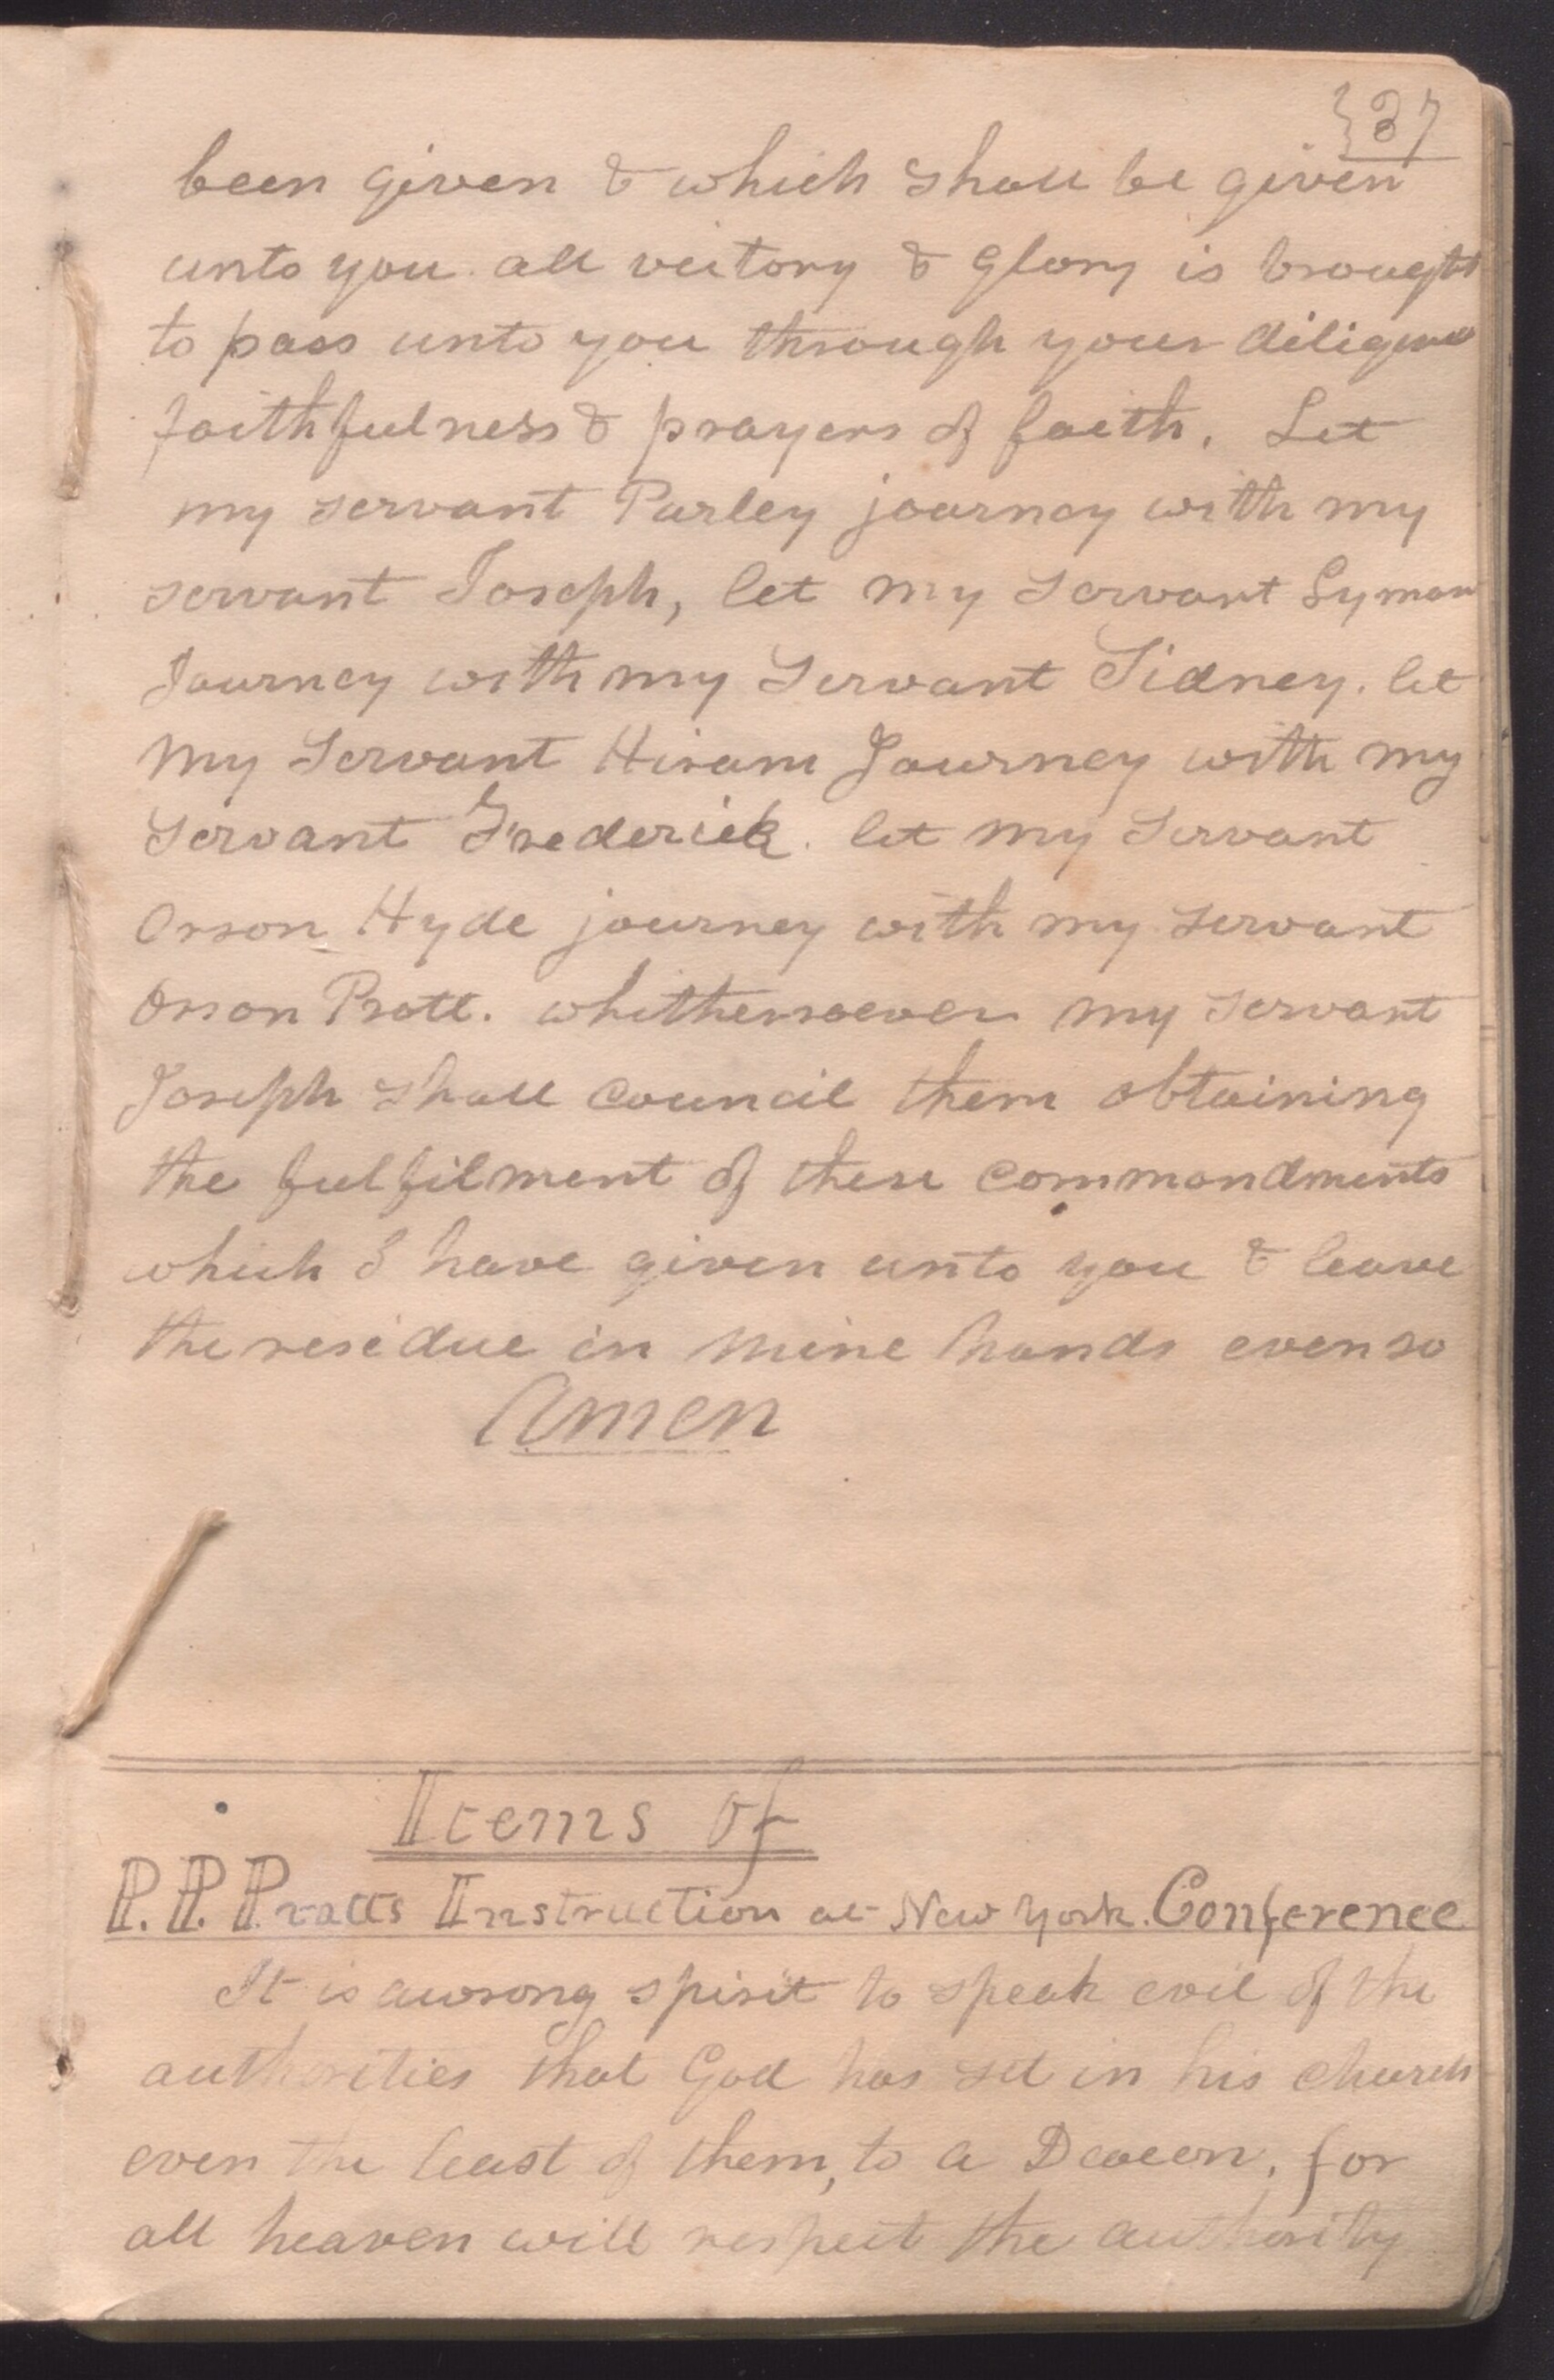 37
been given & which shall be given
unto you. all victory & Glory is brought
to pass unto you through your diligence
faithfulness & prayers of faith. Let
my servant Parley journey with my
servant Joseph, let my servant Lyman
Journey with my Servant Sidney. let
my Servant Hiram Journey with my
Servant Frederick. let my Servant
Orson Hyde journey with my servant
Orson Pratt. whithersoever my servant
Joseph shall council them obtaining
the fulfilment of these commandments
which I have given unto you & leave
the residue in mine hands even so
Amen
Items of
P. P. Pratts Instruction at New York. Conference
It is a wrong spirit to speak evil of the
authorities that God has set in his church
even the least of them, to a Deacon, for
all heaven will respect the authority